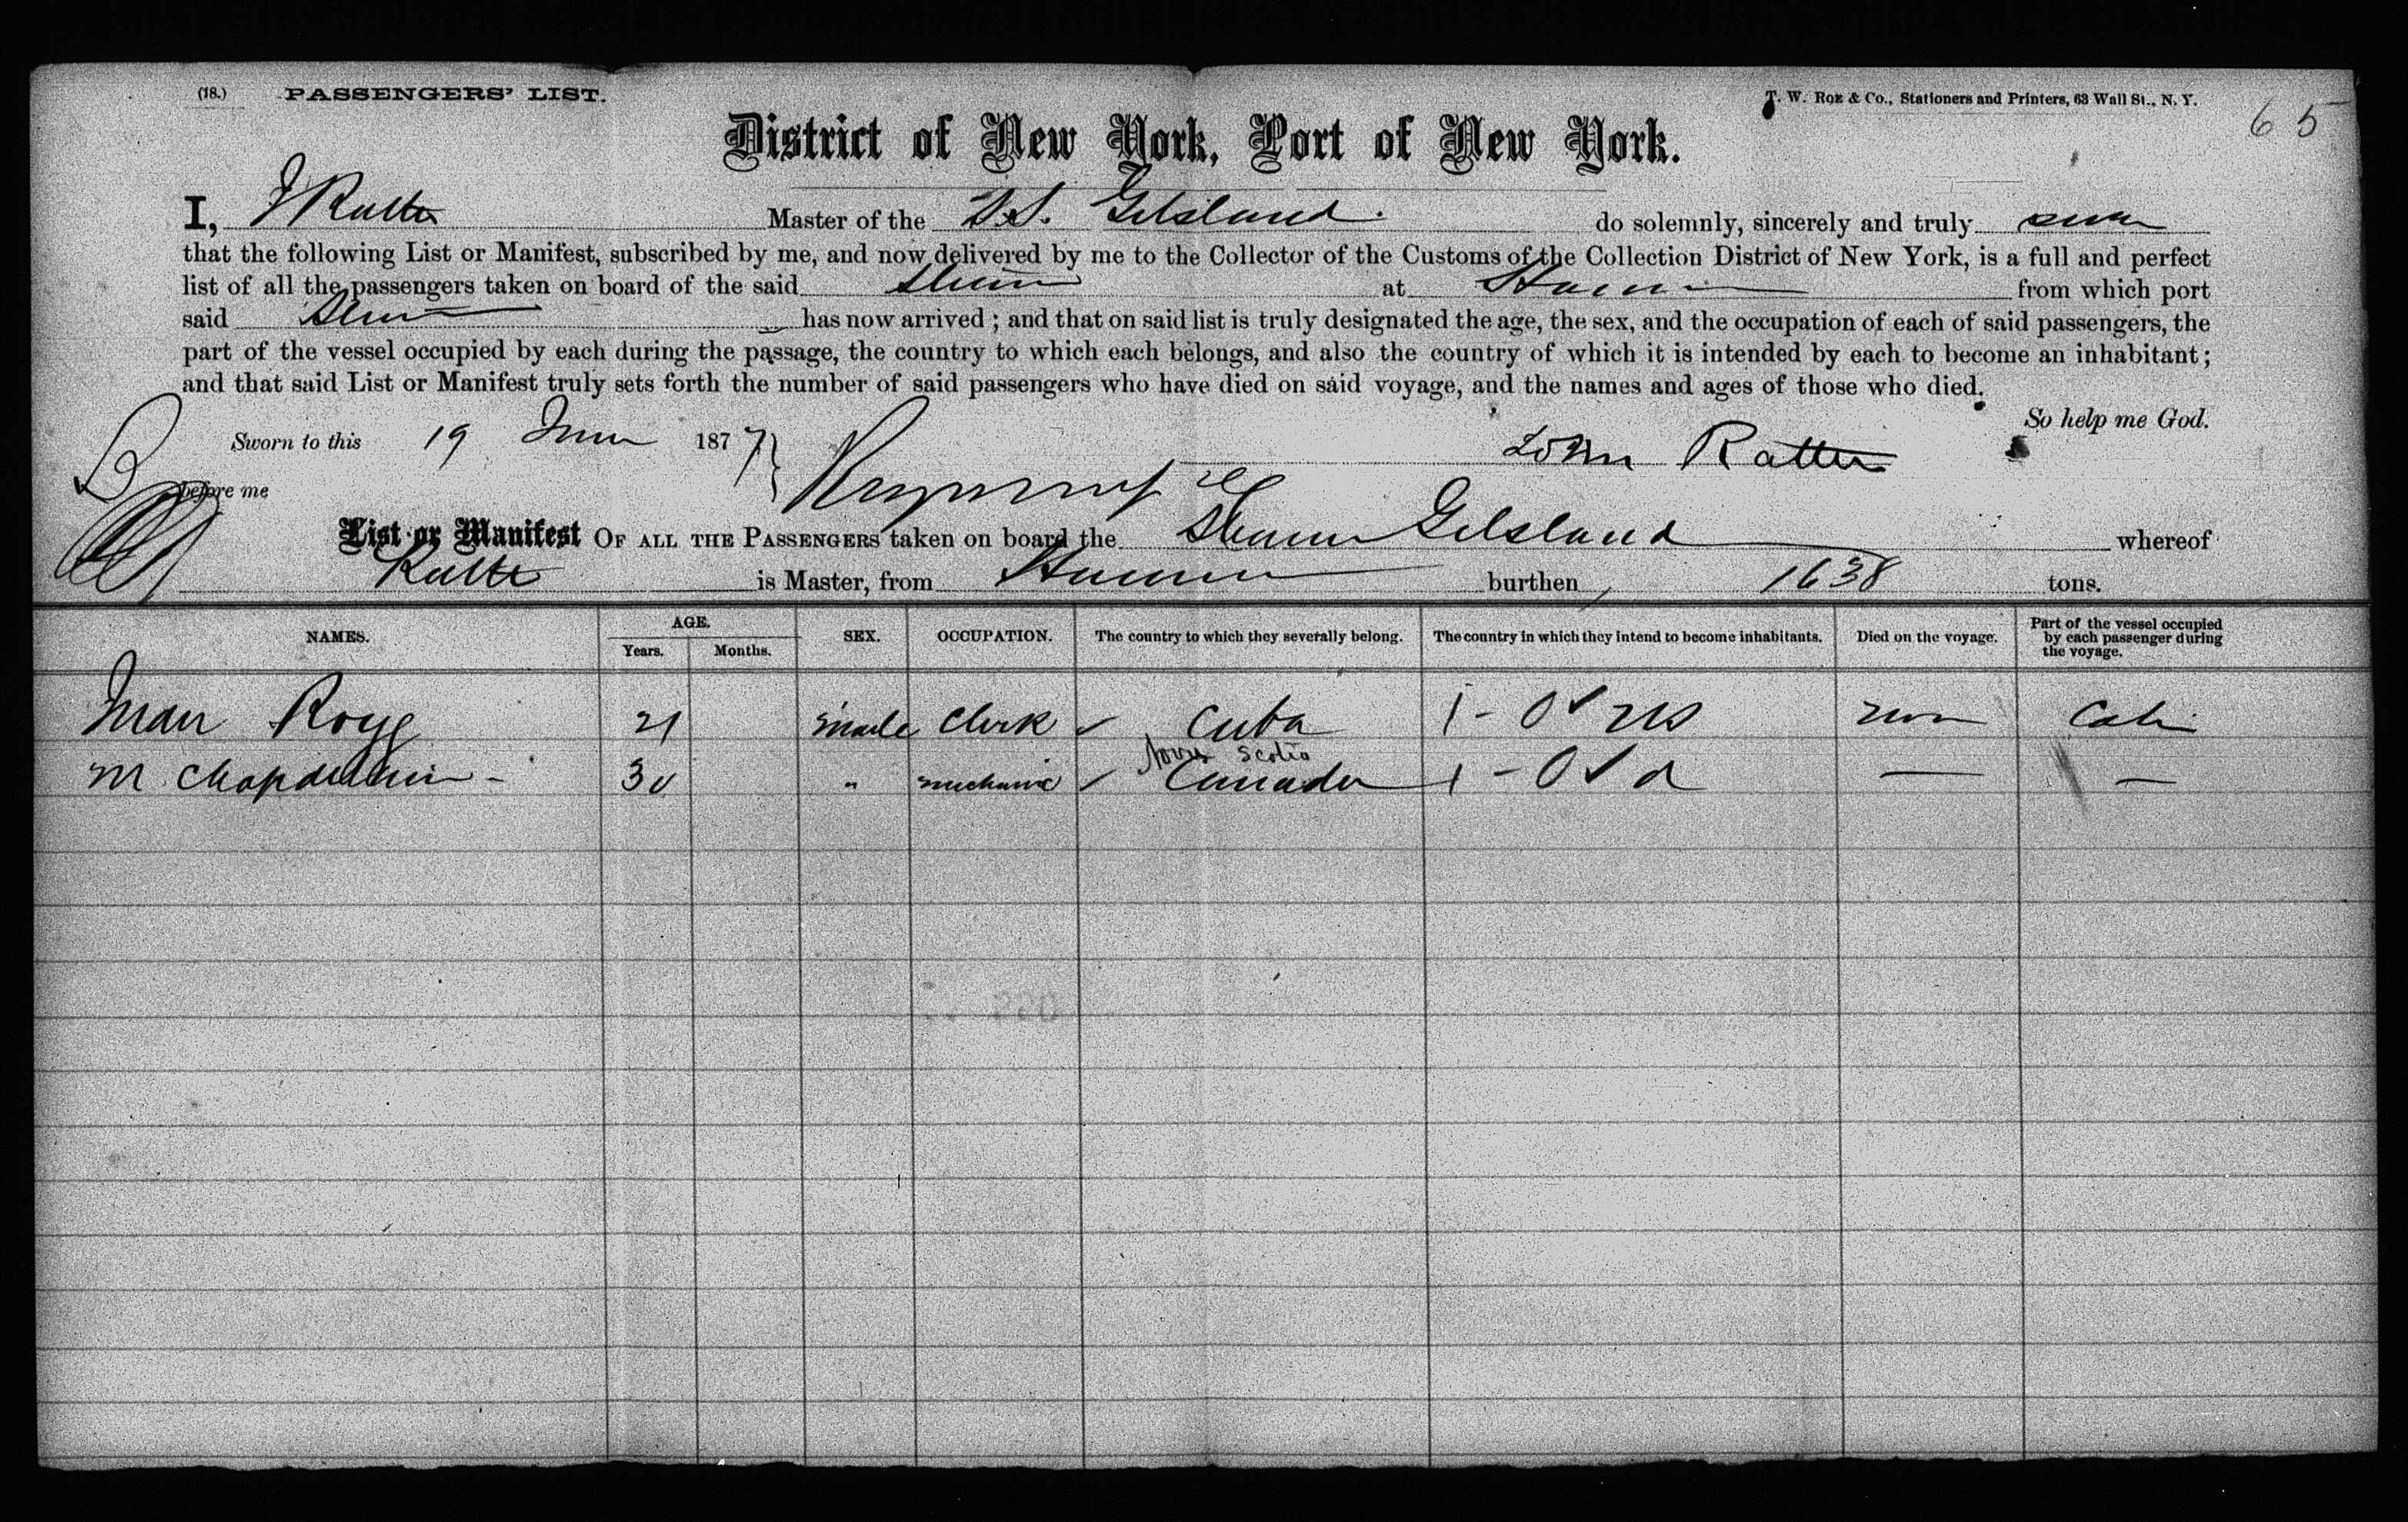 (18.) PASSENGERS' LIST. T. W. Roe & Co., Stationers and Printers, 63 Wall St., N. Y. 65
District of New York, Port of New York.
I, J Rattr Master of the S.S. Gilsland. do solemnly, sincerely and truly swear
that the following List or Manifest, subscribed by me, and now delivered by me to the Collector of the Customs of the Collection District of New York, is a full and perfect
list of all the passengers taken on board of the said at from which port
said has now arrived; and that on said list is truly designated the age, the sex, and the occupation of each of said passengers, the
part of the vessel occupied by each during the passage, the country to which each belongs, and also the country of which it is intended by each to become an inhabitant;
and that said List or Manifest truly sets forth the number of said passengers who have died on said voyage, and the names and ages of those who died.
So help me God.
Sworn to this 19 June 1877
John Rattr
before me
List or Manifest OF ALL THE PASSENGERS taken on board the Steamer Gilsland whereof
Rattr is Master, from burthen, 1638 tons.
NAMES. AGE. Years. Months. SEX. OCCUPATION. The country to which they severally belong. The country in which they intend to become inhabitants. Died on the voyage. Part of the vessel occupied by each passenger during the voyage.
Juan Roye 21 male Clerk Cuba 1 - US non Cabin
Nova Scotia
M Chapdelain - 30 " mechanic Canada 1 - — —